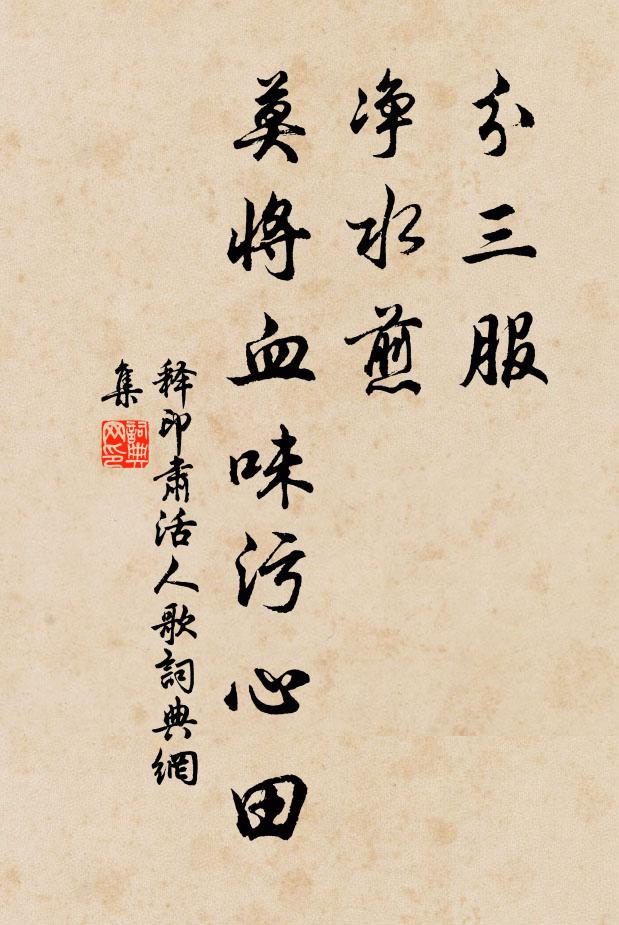 分三服
净水煎
莫将血味污心田
释印肃活人歌詞典網
集
詞典
网印